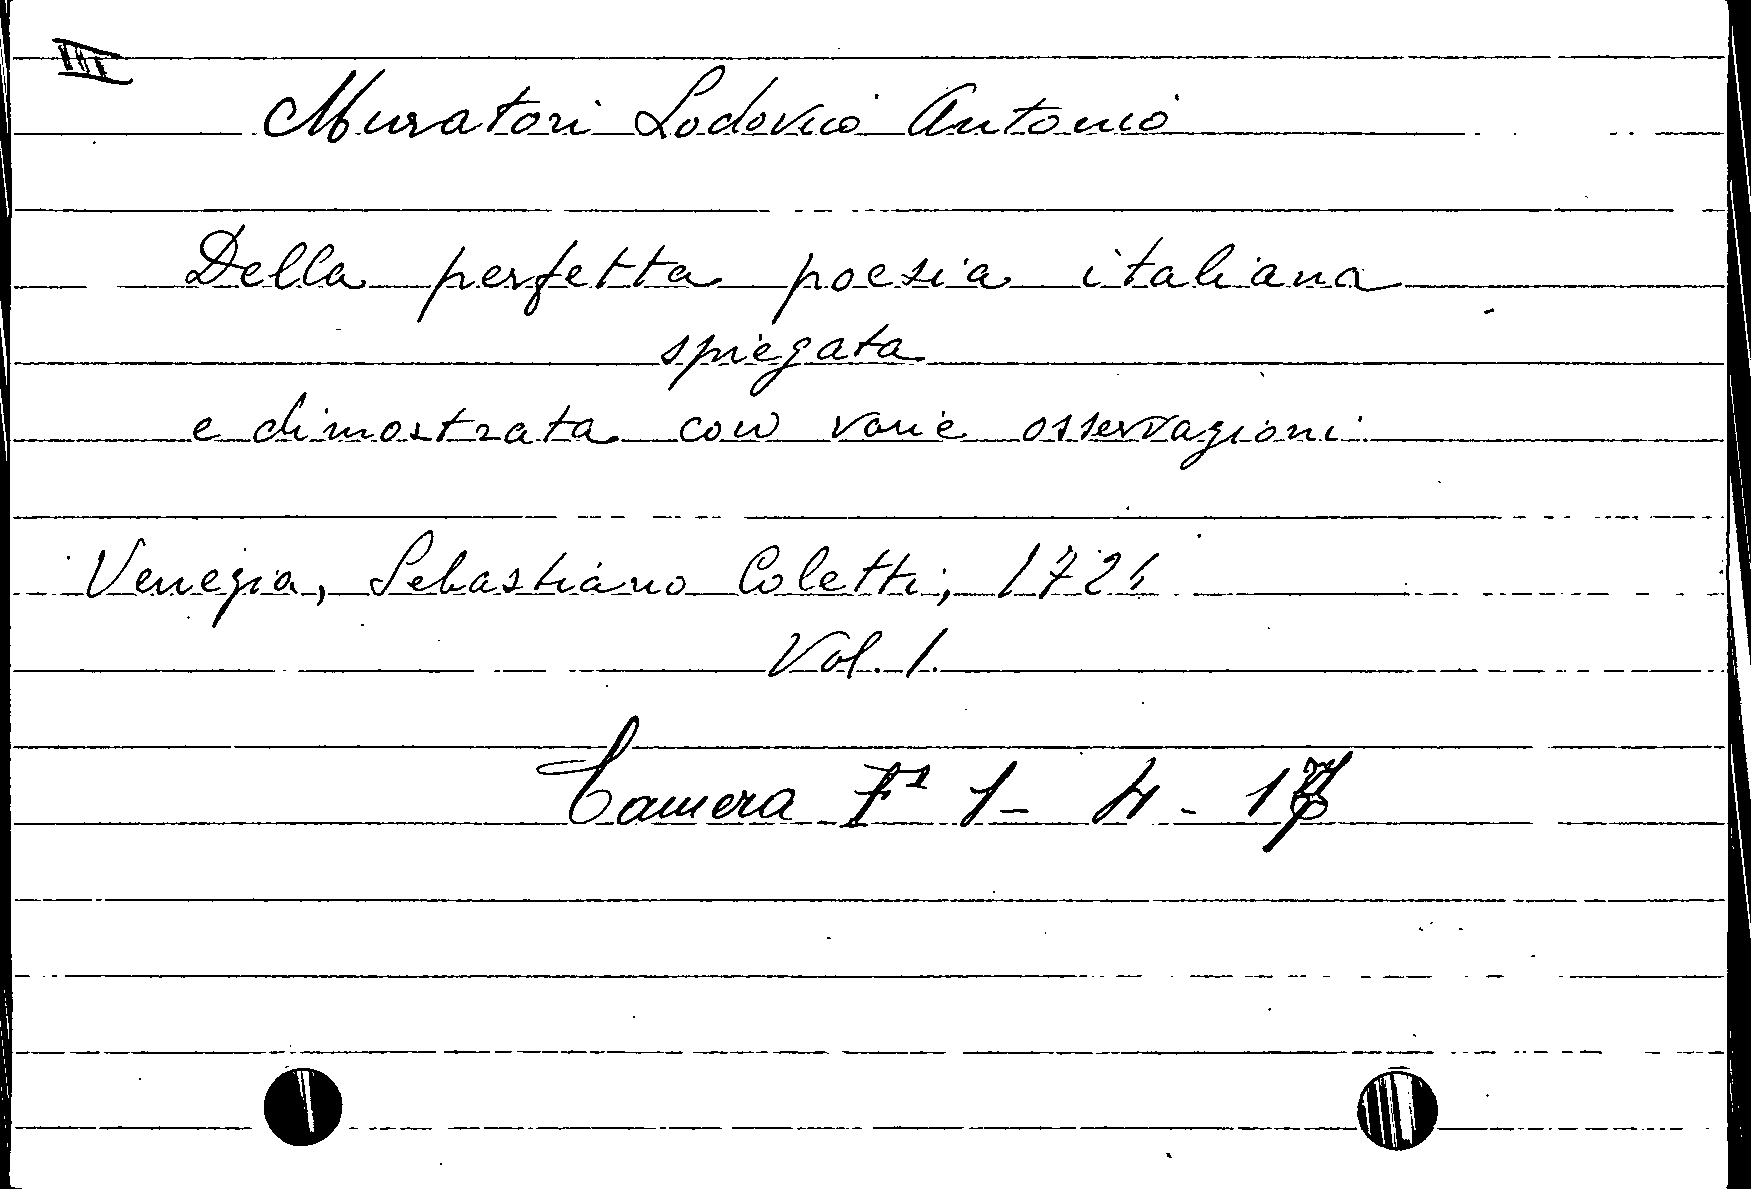 III
Muratori Lodovico Antonio
Della perfetta poesia italiana
spiegata
e dimostrata con varie osservazioni
Venezia, Sebastiano Coletti, 1724
Vol. 1.
Camera F¹ 1 - 4 - 17